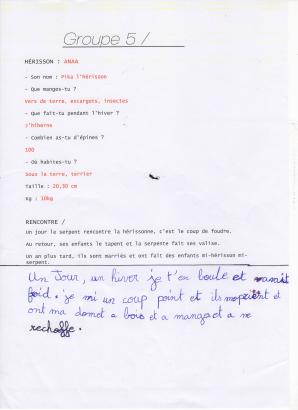 Groupe 5 /
HÉRISSON : ANAA
- Son nom : Pika l'hérisson
- Que manges-tu ?
Vers de terre, escargots, insectes
- Que fait-tu pendant l'hiver ?
J'hiberne
- Combien as-tu d'épines ?
100
- Où habites-tu ?
Sous la terre, terrier
Taille : 20,30 cm
Kg : 10kg
RENCONTRE /
Un jour le serpent rencontre la hérissonne, c'est le coup de foudre.
Au retour, ses enfants le tapent et la serpente fait ses valise.
Un an plus tard, ils sont marriés et ont fait des enfants mi-hérisson mi-
serpent.
Un Jour, un hiver je t'en boule et
foid. je mi un coup point et ils et
ont ma domet a bois et a manga et a me
rechoffe.